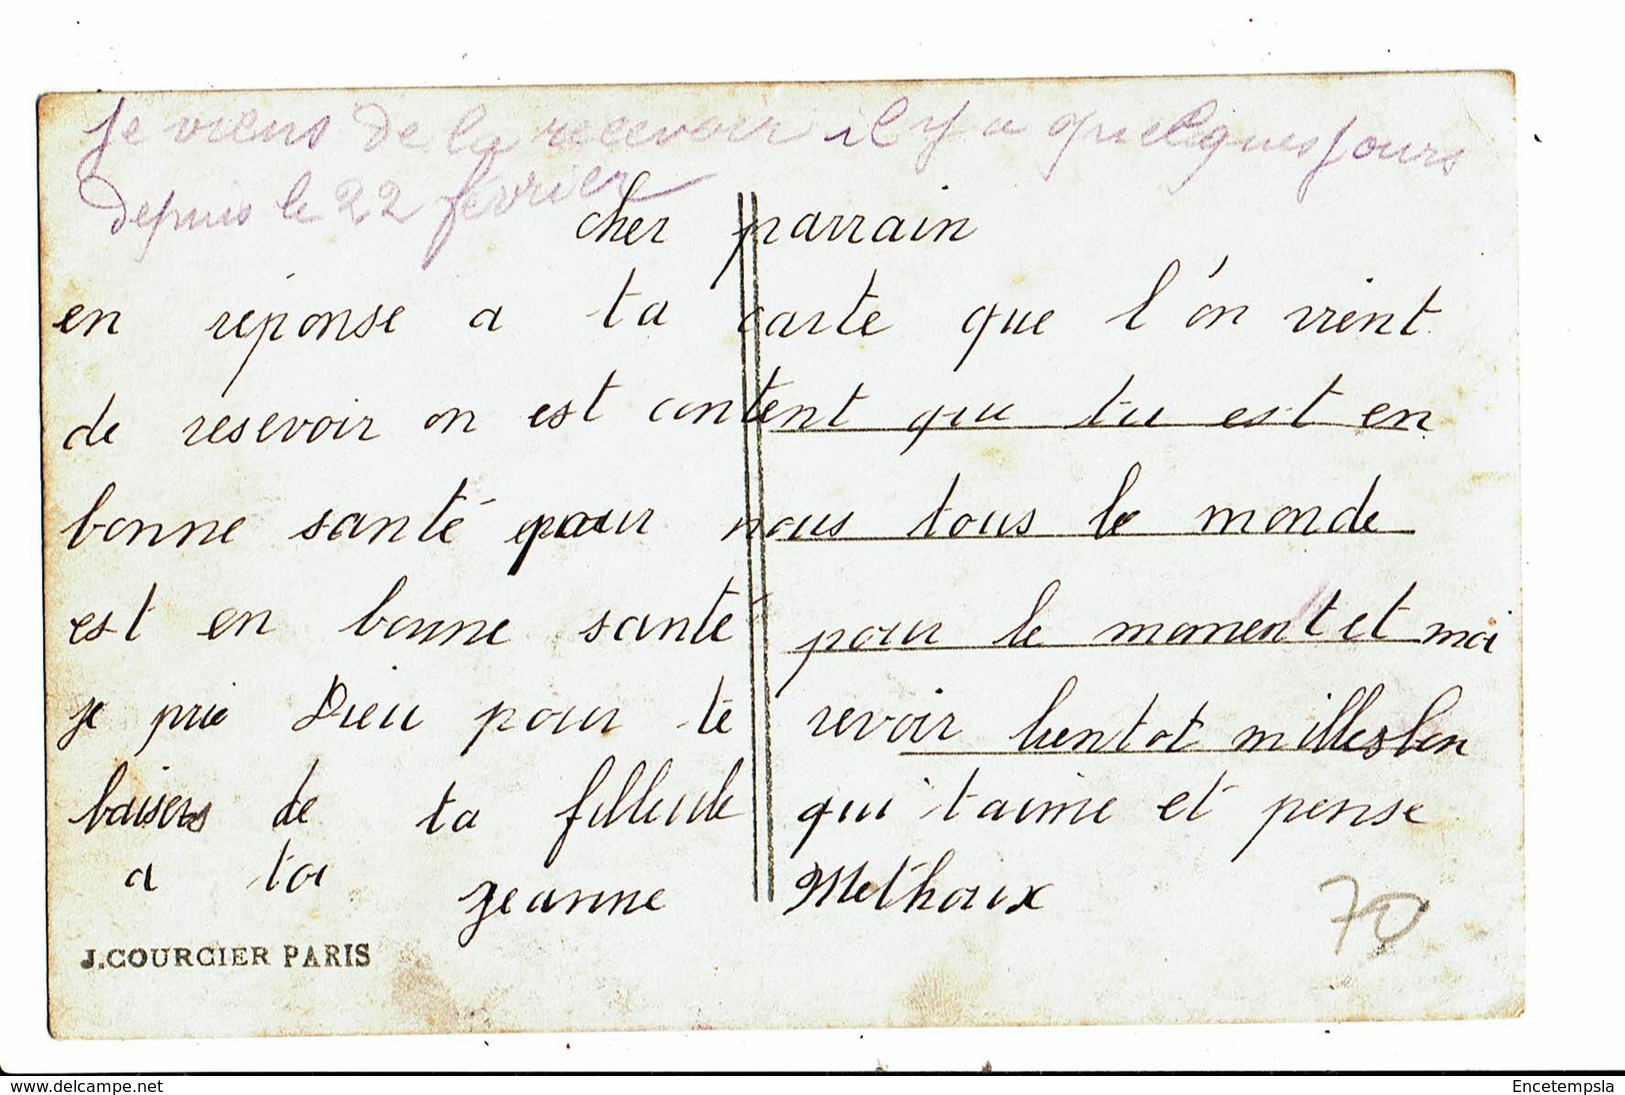 Je viens de la recevoir il y a quelques jours
depuis le 22 février
cher parrain
en réponse a ta carte que l'on vient
de resevoir on est content que tu est en
bonne santé pour nous tous le monde
est en bonne santé pour le moment et moi
je prie Dieu pour te revoir bientot milles bon
baisers de ta filleule qui t'aime et pense
a toi Jeanne Methoux
70
J.COURCIER PARIS
www.delcampe.net
Encetempsla